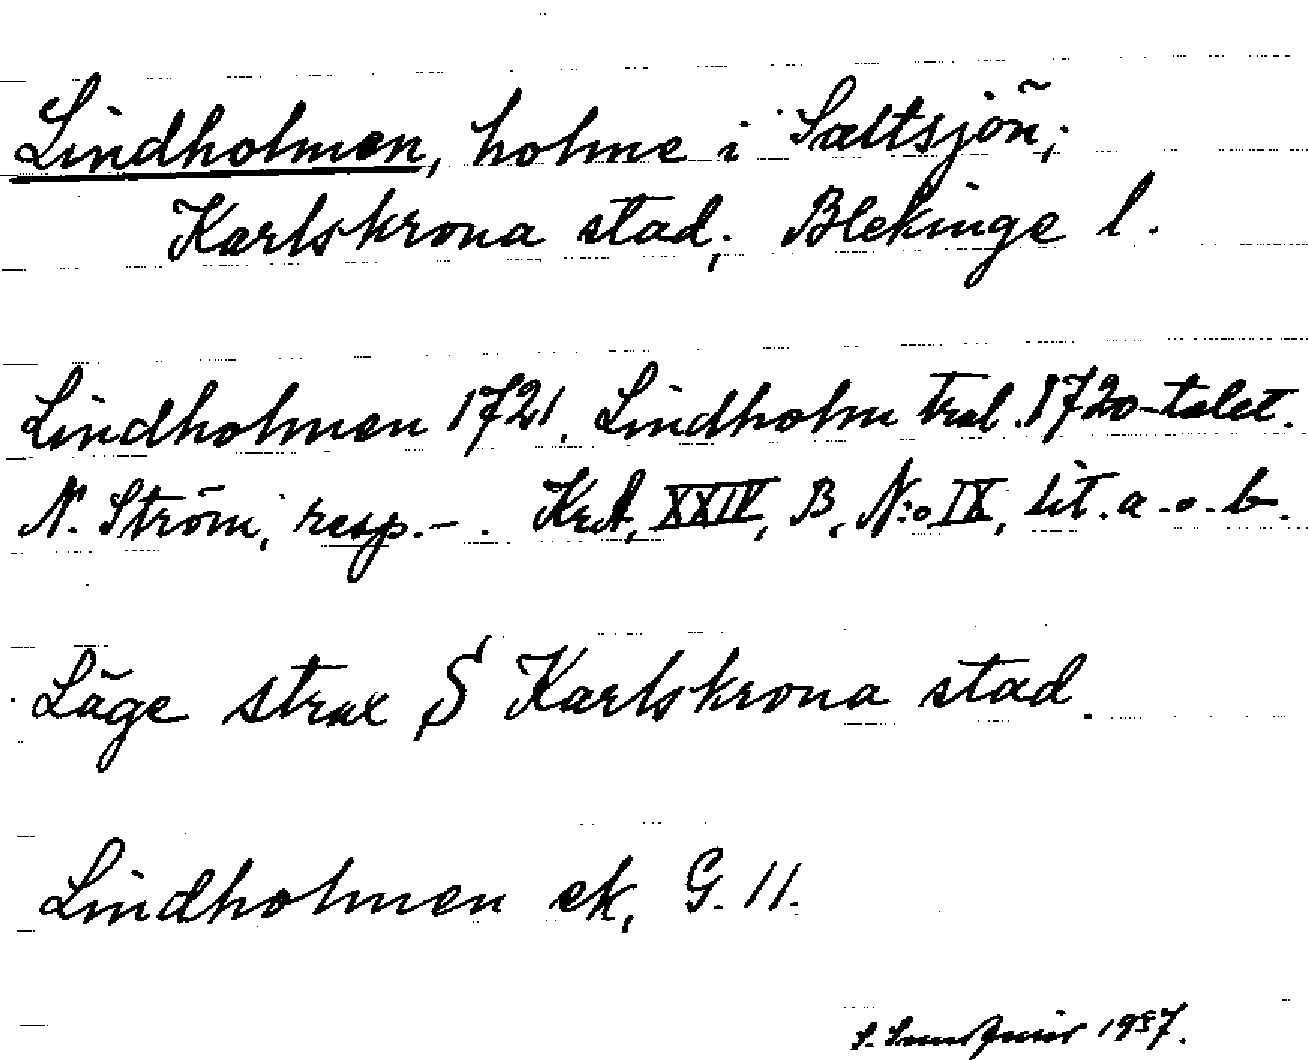 Lindholmen, holme i Saltsjön;
Karlskrona stad; Blekinge l.
Lindholmen 1721, Lindholm trol. 1720-talet.
N. Ström, resp. -. KrA, XXIV, B, N:o IX, lit. a. o. b.
Läge strax S Karlskrona stad.
Lindholmen ek, G. 11.
S. 1937.